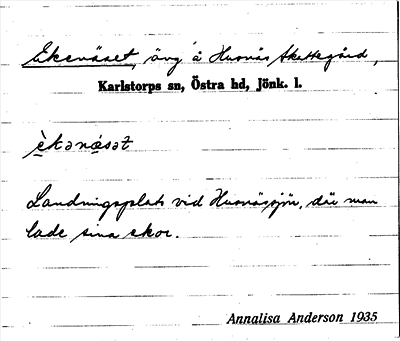 Ekenäset, äng å Husnäs Skattegård,
Karlstorps sn, Östra hd, Jönk. l.
èkanæ̀sət
Landningsplats vid Husnässjön, där man
lade sina ekor.
Annalisa Anderson 1935